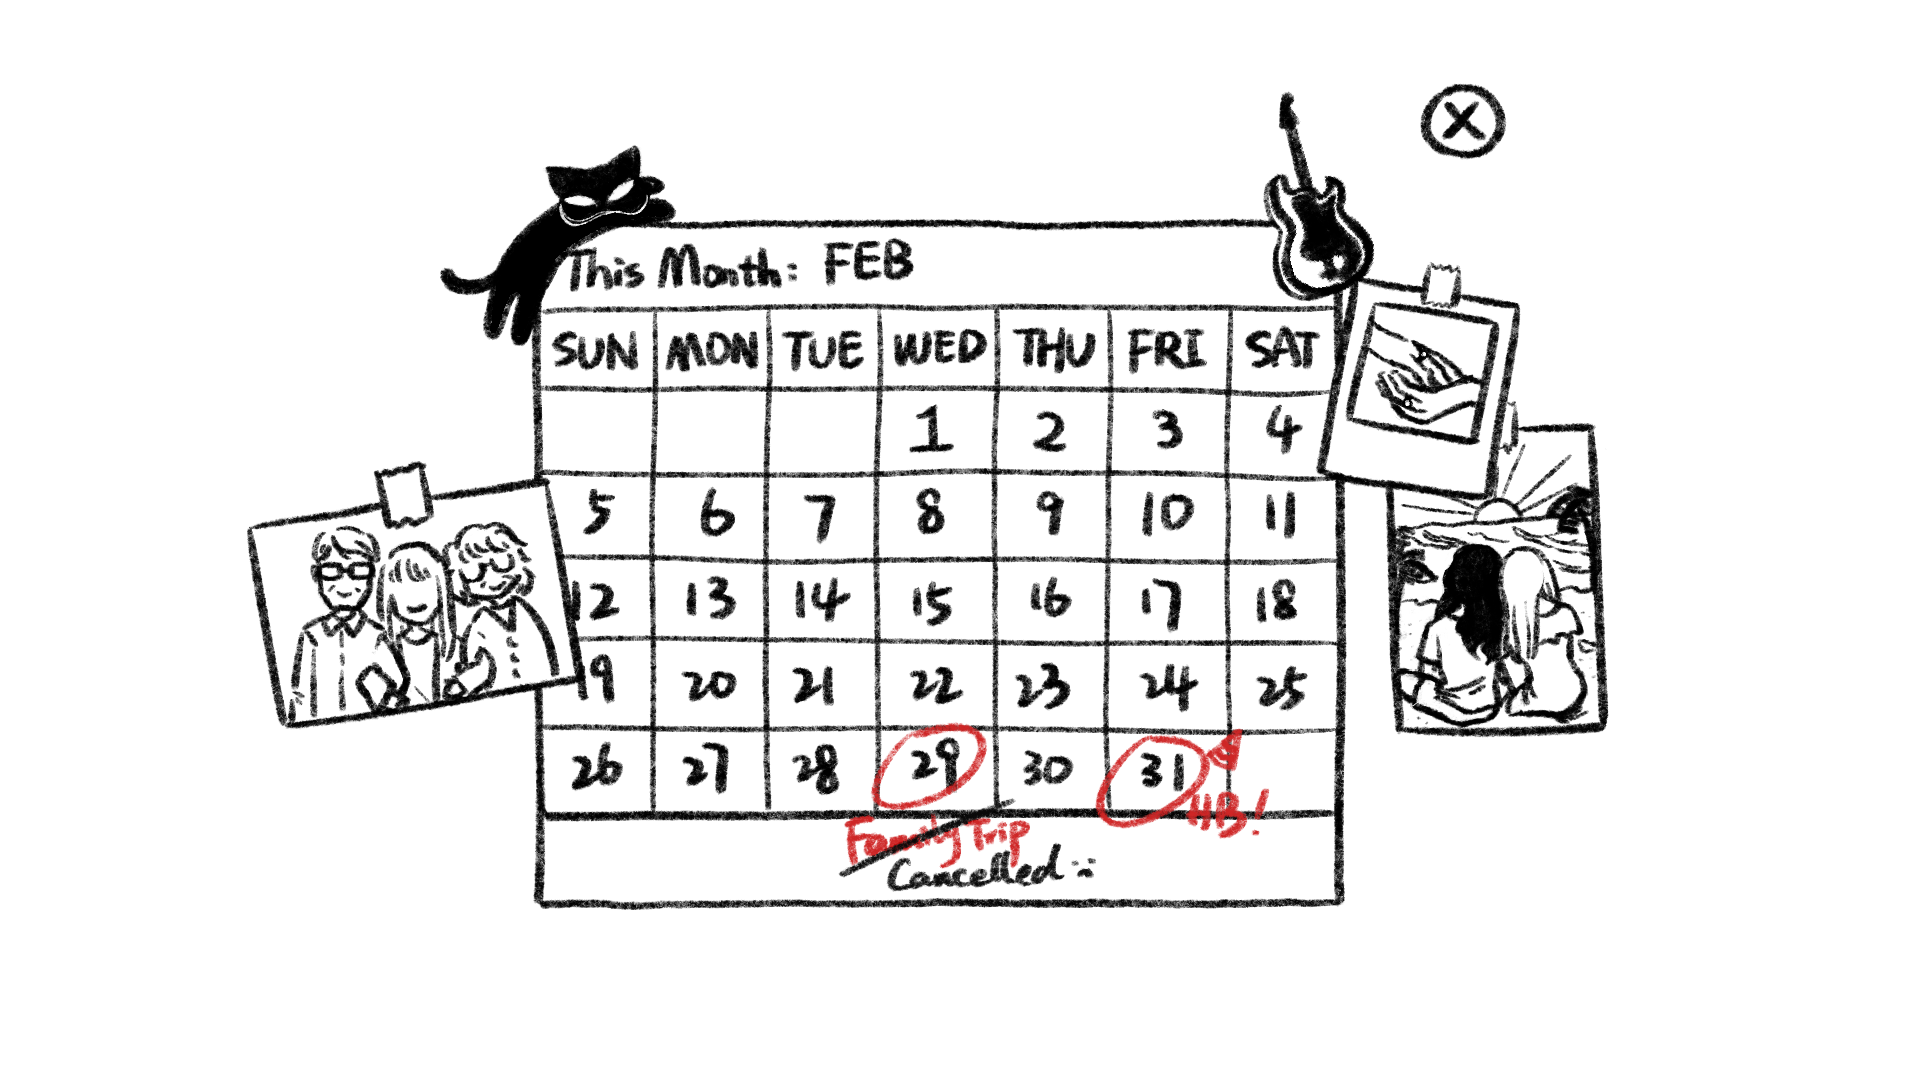 This Month: FEB
SUN MON TUE WED THU FRI SAT
1 2 3 4
5 6 7 8 9 10 11
12 13 14 15 16 17 18
19 20 21 22 23 24 25
26 27 28 29 30 31
HB!
Family Trip
Cancelled :(